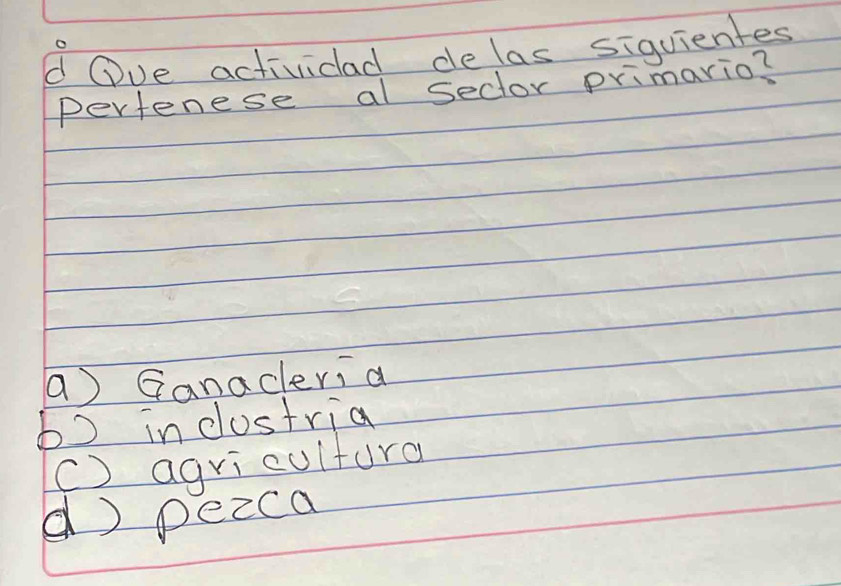 ¿Que actividad de las siguientes
pertenese al sector primario?
a) Ganaderia
b) industria
c) agricultura
d) pezca